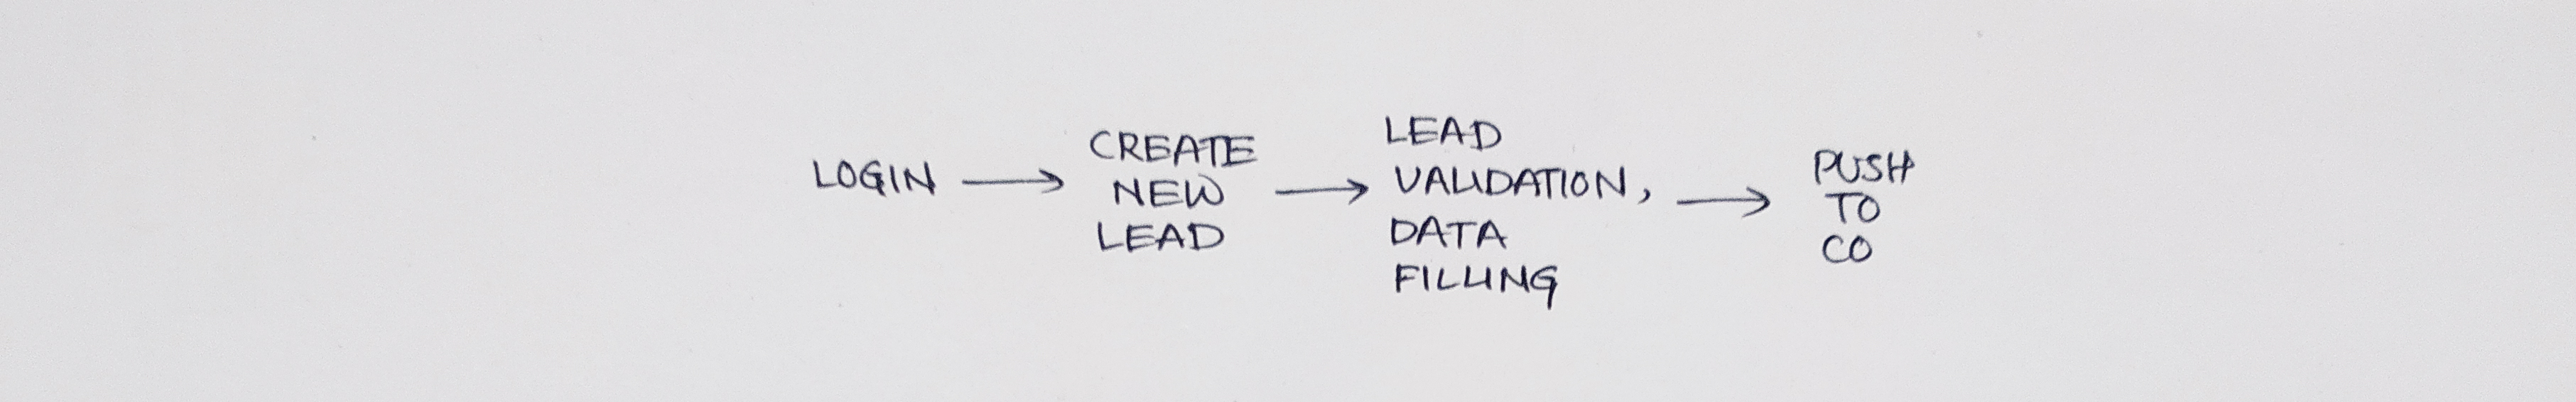 LOGIN → CREATE NEW LEAD → LEAD VALIDATION, DATA FILLING → PUSH TO CO